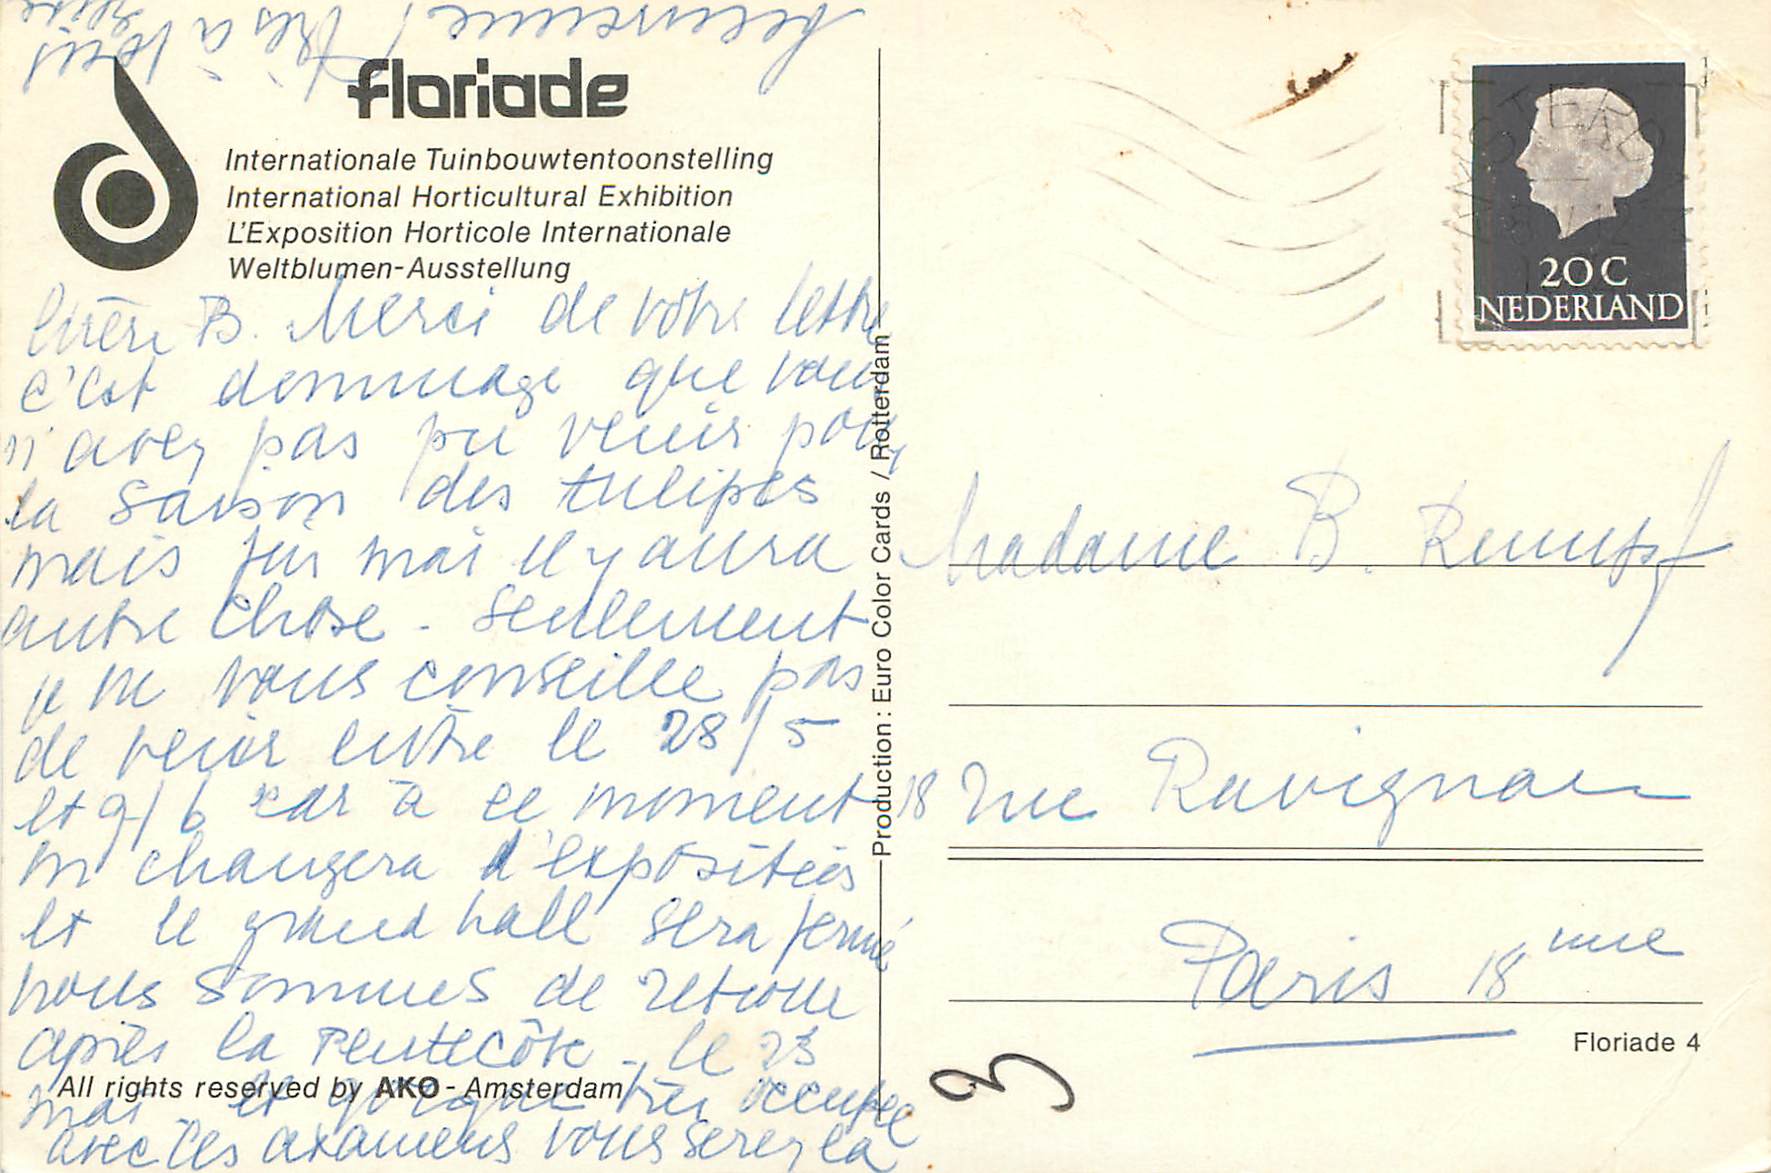 floriade
Internationale Tuinbouwtentoonstelling
International Horticultural Exhibition
L'Exposition Horticole Internationale
Weltblumen-Ausstellung
Chère B. Merci de votre lettre
c'est dommage que vous
n'avez pas pu venir pour
la saison des tulipes
mais fin mai il y aura
autre chose - seulement
je ne vous conseille pas
de venir entre le 28/5
et 9/6 car à ce moment
on changera d'exposities
et le grand hall sera fermé
nous sommes de retour
après la Pentecôte - le 23
mai et très occupée
avec les examens vous serez la
bienvenue! très à
All rights reserved by AKO - Amsterdam
Production: Euro Color Cards / Rotterdam
AMSTERDAM
20 C
NEDERLAND
Madame B. Rumpf
18 rue Ravignan
Paris 18 me
Floriade 4
3